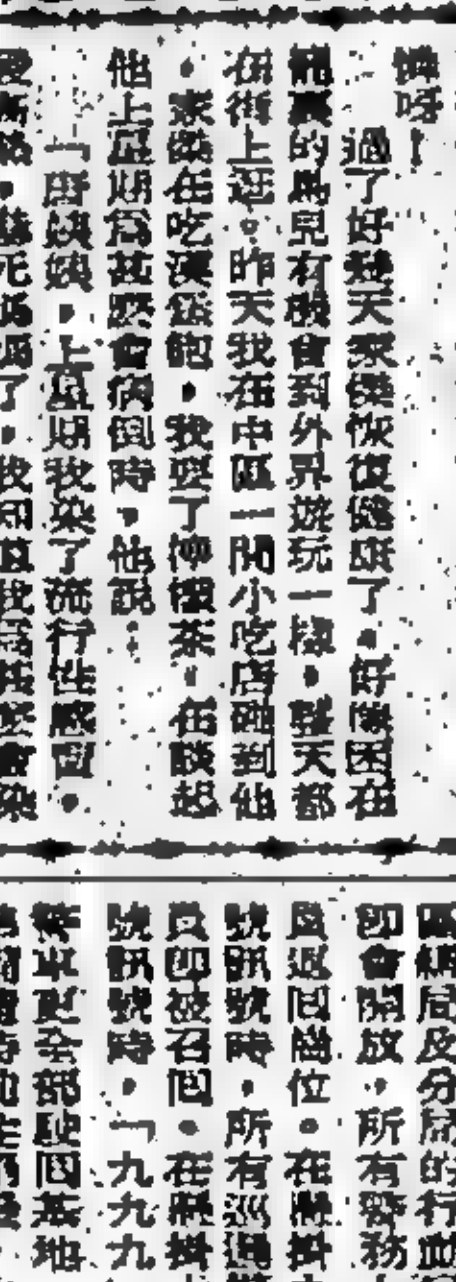 憐呀！
過了好幾天家樑恢復健康了。好像困在
籠裏的鳥兒有機會到外界遊玩一樣，整天都
在街上逛。昨天我在中區一間小吃店碰到他
，家樑在吃漢堡飽，我要了檸檬茶。在談起
他上星期爲甚麼會病倒時，他說：
「唐姨姨，上星期我染了流行性感冒。
死媽媽了，我知道我爲甚麼會染
總局及分局的行
即會開放，所有警務
員返回崗位。在懸掛
號訊號時，所有巡邏
員即被召回。在懸掛
號訊號時，「九九九
車更全部駛回基地